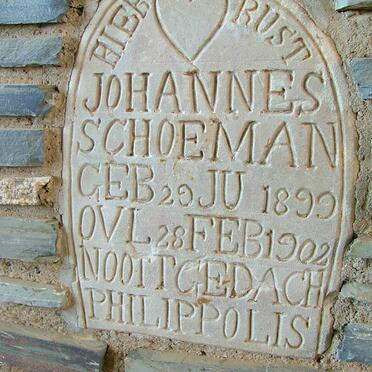 HIER RUST
JOHANNES
SCHOEMAN
GEB 29 JU 1899
OVL 28 FEB 1902
NOOITGEDACH
PHILIPPOLIS